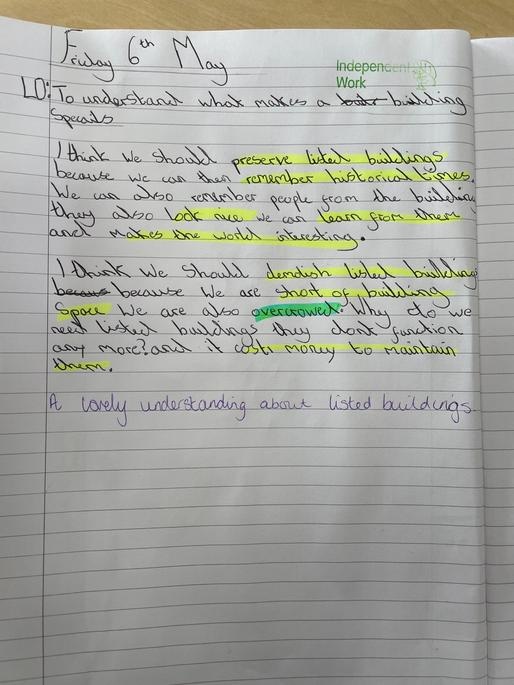 Friday 6th May
Independent
Work
LO: To understand what makes a building
specails
I think we should preserve listed buildings
because we can then remember historical times.
We can also remember people from the building
they also look nice we can learn from them
and makes the world interesting.
I think we should demolish listed building
because we are short of building
space we are also overcrowed. Why do we
need listed buildings they dont function
any more? and it costs money to maintain
them.
A lovely understanding about listed buildings.